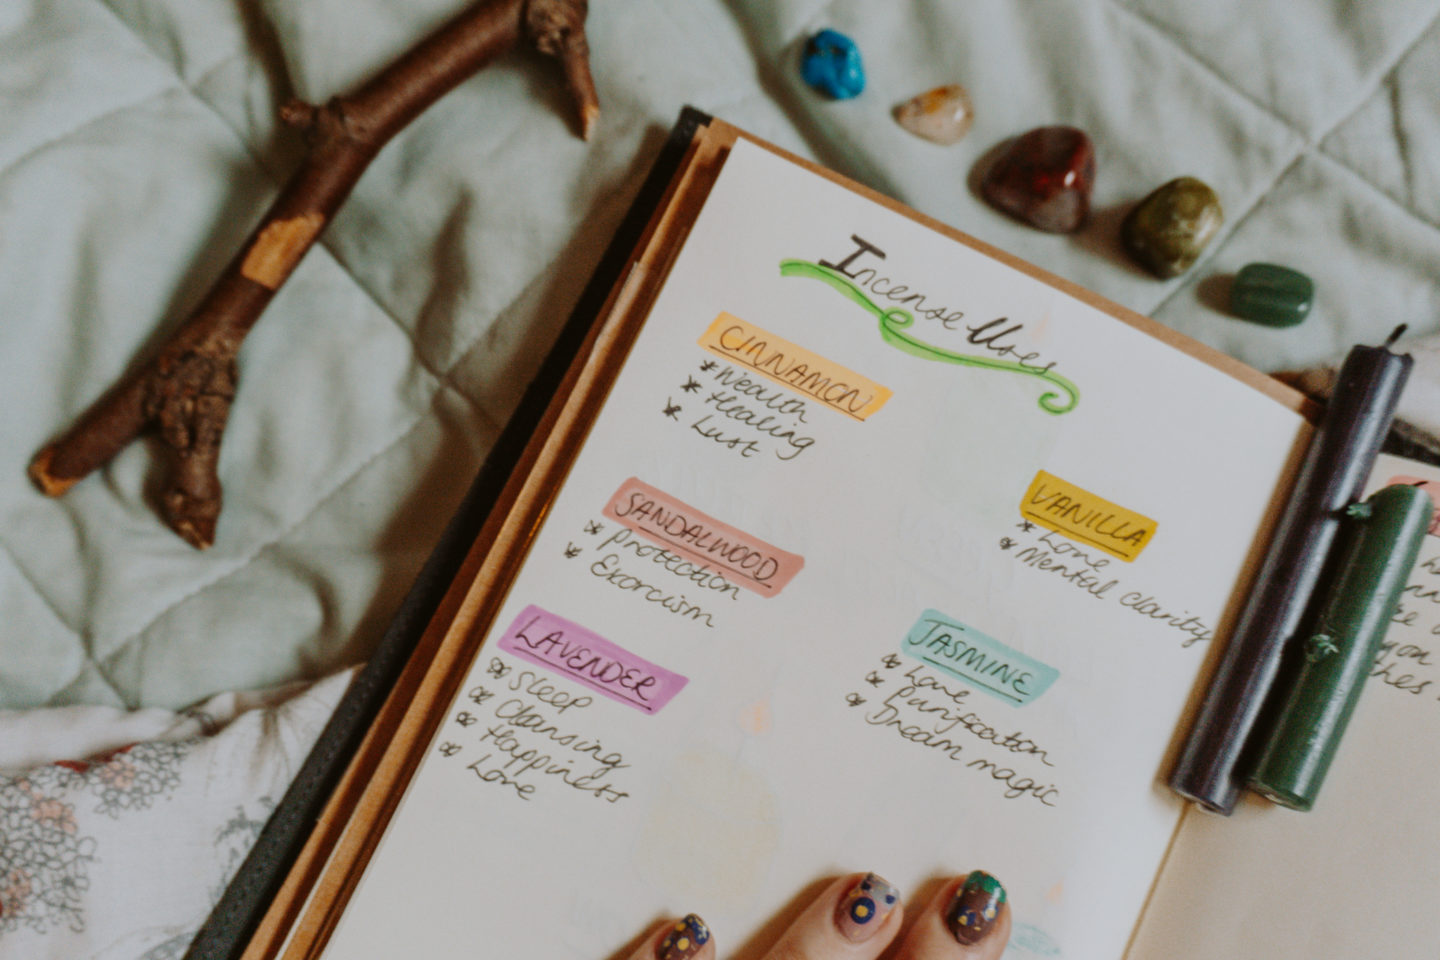 Incense Uses
CINNAMON
* Wealth
* Healing
* Lust
SANDALWOOD
* Protection
* Exorcism
LAVENDER
* Sleep
* Clansing
* Happiness
* Love
VANILLA
* Love
* Mental clarity
JASMINE
* Love
* Purification
* Dream magic